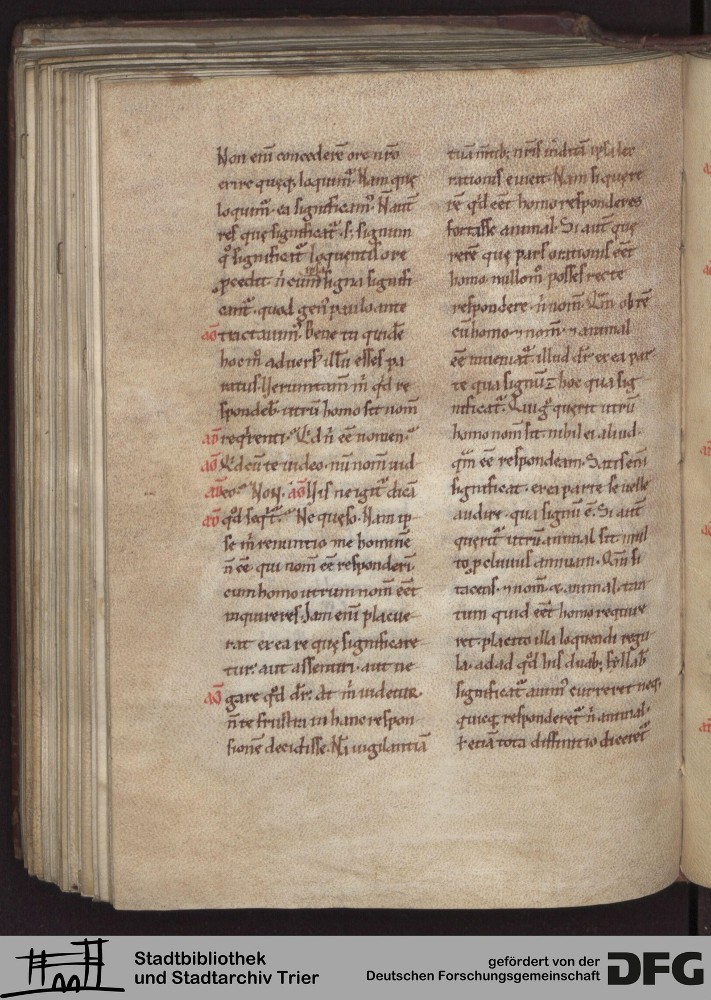 Non eni concederē ore nr̄o
exire queq; loquimr̄. Nam quę
loquimr̄. ea significam̄. Nō aut̄
res quę significat̄. s; signum
q̊ significat̄ loquentis ore
pcedit. n̄ cum ipsa signa signifi
cant̄. quod gen̄ paulo ante
aḡ tractauim̄. Bene tu quidē
hoc m̊ aduers; illū esses pa
ratus. Uerumtam̄ m̄ q̄d re
spondeb̄ utrū homo sit nom̄
ad̄ reqrenti. Qd n̄ ee nomen.
aḡ Qd cū te uideo. nū nom̄ uid
ad̄ eo. Non. aḡ Uis ne igit̄ dicā
ad̄ qd seqt̄. Ne queso. Nam ip
se m̄ renuntio me hominē
n̄ ēe. qui nom̄ ēe responderī.
cum homo utrum nom̄ eēt
inquireres. Iam enī placue
rat ex ea re quę significare
tur. aut assentiri. aut ne
aḡ gare qd dr̄. At m̄ uidetur.
n̄ te frustra in hanc respon
sionē decidisse. Nā uigilantiā
tuā mtib; nr̄is indita ipsa lex
rationis euicit. Nam si quere
rē qd eēt homo responderes
fortasse animal. Si aut̄ quę
rerē quę pars orationis eēt
homo. nullom̊ posses recte
respondere. n̄ nom̄. Qm̄ ob rē
cū homo & nom̄. & animal
ēe inueniat̄. illud dr̄ ex ea par
te qua signū ē. hoc qua sig
nificat̄. Qui g̊ querit utrū
homo nom̄ sit. nihil ei aliud.
qm̄ ēe respondeam. Satis enī
significat. ex ea parte se uelle
audire. qua signū ē. Si aut̄
querit̄ utrū animal sit. mul
to pcliuius annuam. Qm̄ si
tacens. & nom̄. & animal. tan
tum quid eēt homo require
ret. placito illa loquendi regu
la. ad ad qd his duab; syllab̄
significat̄ anim̄ curreret neq;
quicq̄ responderet̄ n̄ animal.
t etiā tota diffinitio diceret̄
Stadtbibliothek
und Stadtarchiv Trier
gefördert von der
Deutschen Forschungsgemeinschaft
DFG